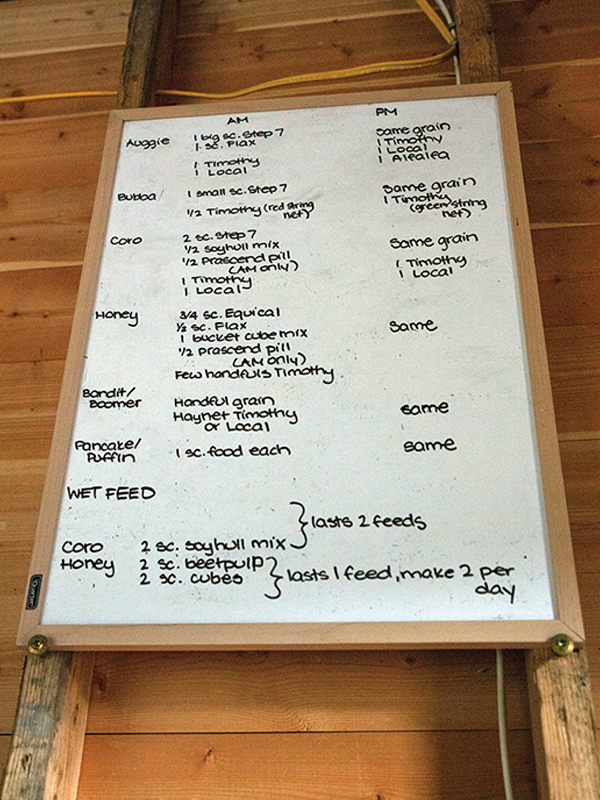 AM PM
Auggie 1 big sc. Step 7 Same grain
1 sc. Flax 1 Timothy
1 Timothy 1 Local
1 Local 1 Alfalfa
Bubba 1 small sc. Step 7 Same grain
1/2 Timothy (red string net) 1 Timothy (green string net)
Coro 2 sc. Step 7 Same grain
1/2 soyhull mix
1/2 Prascend pill 1 Timothy
(AM only) 1 Local
1 Timothy
1 Local
Honey 3/4 sc. Equical same
1/2 sc. Flax
1 bucket cube mix
1/2 Prascend pill
(AM only)
Few handfuls Timothy
Bandit/ Handful grain same
Boomer Haynet Timothy
or Local
Pancake/ 1 sc. food each same
Puffin
WET FEED
Coro 2 sc. soyhull mix } lasts 2 feeds
Honey 2 sc. beetpulp } lasts 1 feed, make 2 per day
2 sc. cubes
Quartet